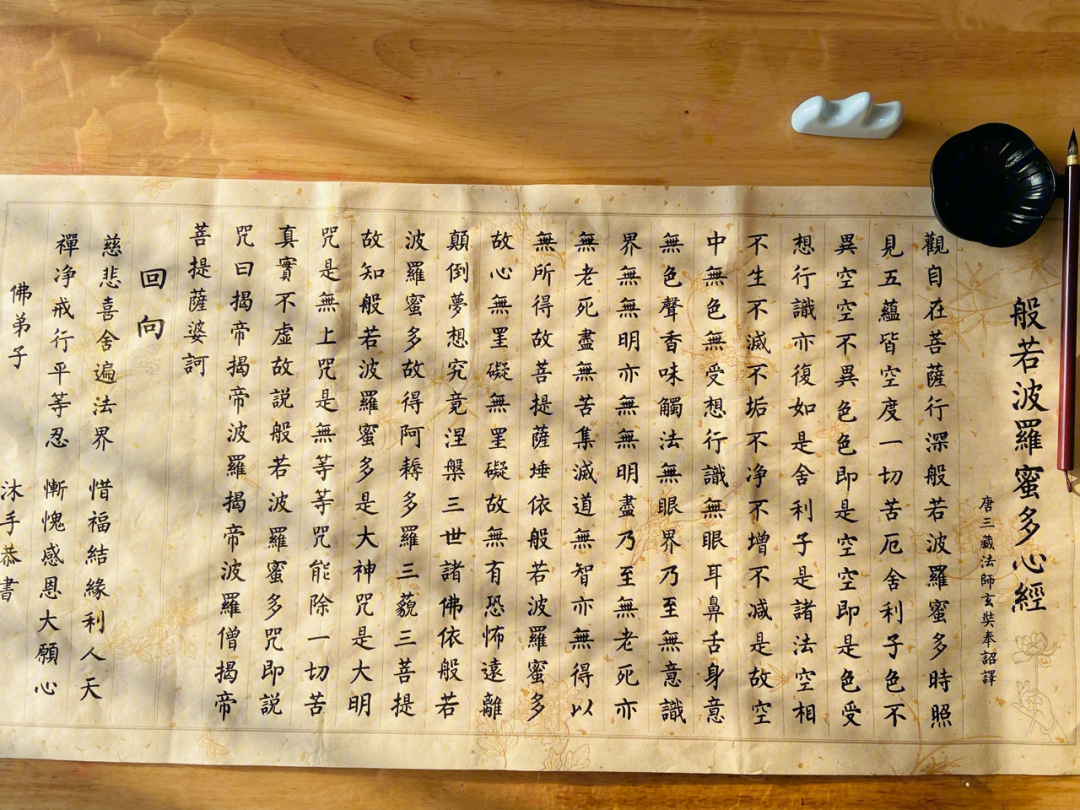 般若波羅蜜多心經
唐三藏法師玄奘奉詔譯
觀自在菩薩行深般若波羅蜜多時照
見五蘊皆空度一切苦厄舍利子色不
異空空不異色色即是空空即是色受
想行識亦復如是舍利子是諸法空相
不生不滅不垢不净不增不减是故空
中無色無受想行識無眼耳鼻舌身意
無色聲香味觸法無眼界乃至無意識
界無無明亦無無明盡乃至無老死亦
無老死盡無苦集滅道無智亦無得以
無所得故菩提薩埵依般若波羅蜜多
故心無罣礙無罣礙故無有恐怖遠離
顛倒夢想究竟涅槃三世諸佛依般若
波羅蜜多故得阿耨多羅三藐三菩提
故知般若波羅蜜多是大神咒是大明
咒是無上咒是無等等咒能除一切苦
真實不虛故説般若波羅蜜多咒即説
咒曰揭帝揭帝波羅揭帝波羅僧揭帝
菩提薩婆訶
回向
慈悲喜舍遍法界 惜福結緣利人天
禪净戒行平等忍 慚愧感恩大願心
佛弟子 沐手恭書